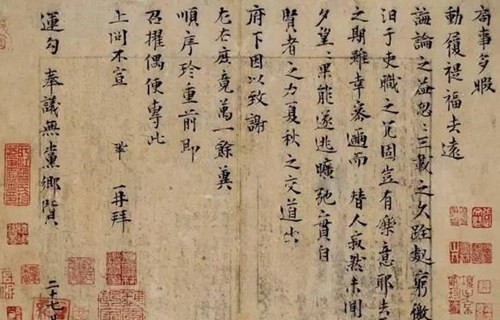 局事多暇
動履禔福去遠
誨論之益忽忽三載之久跧處窮徼
汩於吏職之冗固豈有樂意耶去
之期雖幸密邇而替人寂然未聞
夕望望果能遂逃曠弛實自
賢者之力夏秋之交道出
府下因以致謝
左右庶竟萬一餘冀
順序珍重前即
召擢偶便專此
上問不宣 鞏再拜
運勾奉議無黨鄉賢
二十七日